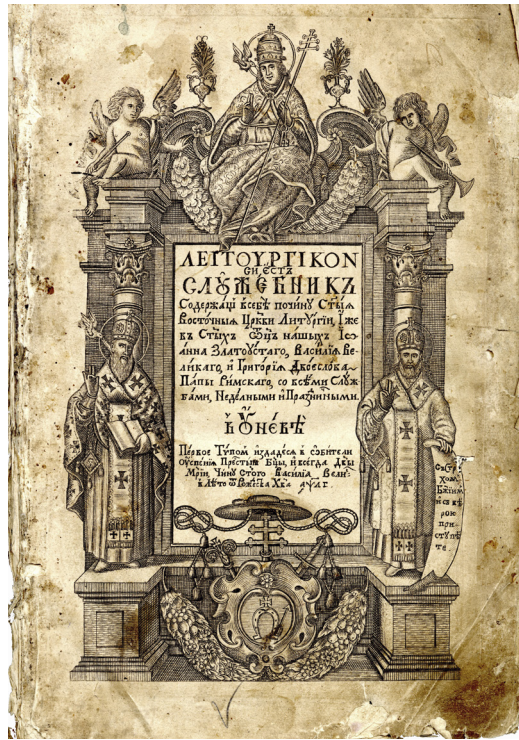 ЛЕІТОУРГІКОН
СИ ЕСТЪ
СЛУЖЕБНИКЪ
Содержащ въ себѣ почину Ст҃ыя
Восточныя Цр҃кви Литургїи, Іже
въ Ст҃ыхъ Ѿц҃ъ нашыхъ Іѡ
анна Златоустаго, Васілїа Ве
ликаго, и Григорїа Двоеслова
Папы Римскаго, со всѣми Служ
бами, Неделными и Праз̾ничными.
Первое Тѵпом издадеся в ѡбители
Оуспенїѧ Прест҃ыѧ Бц҃ы, и всегда Дв҃ы
Мр҃їи, Чину Ст҃ого Васілїа Велик
в Лѣто ѿ Рожества Хв҃а ҂аѱаг.
Съ стра
хом
Бж҃їим
и съ вѣ
рою
при
ступѣ
те